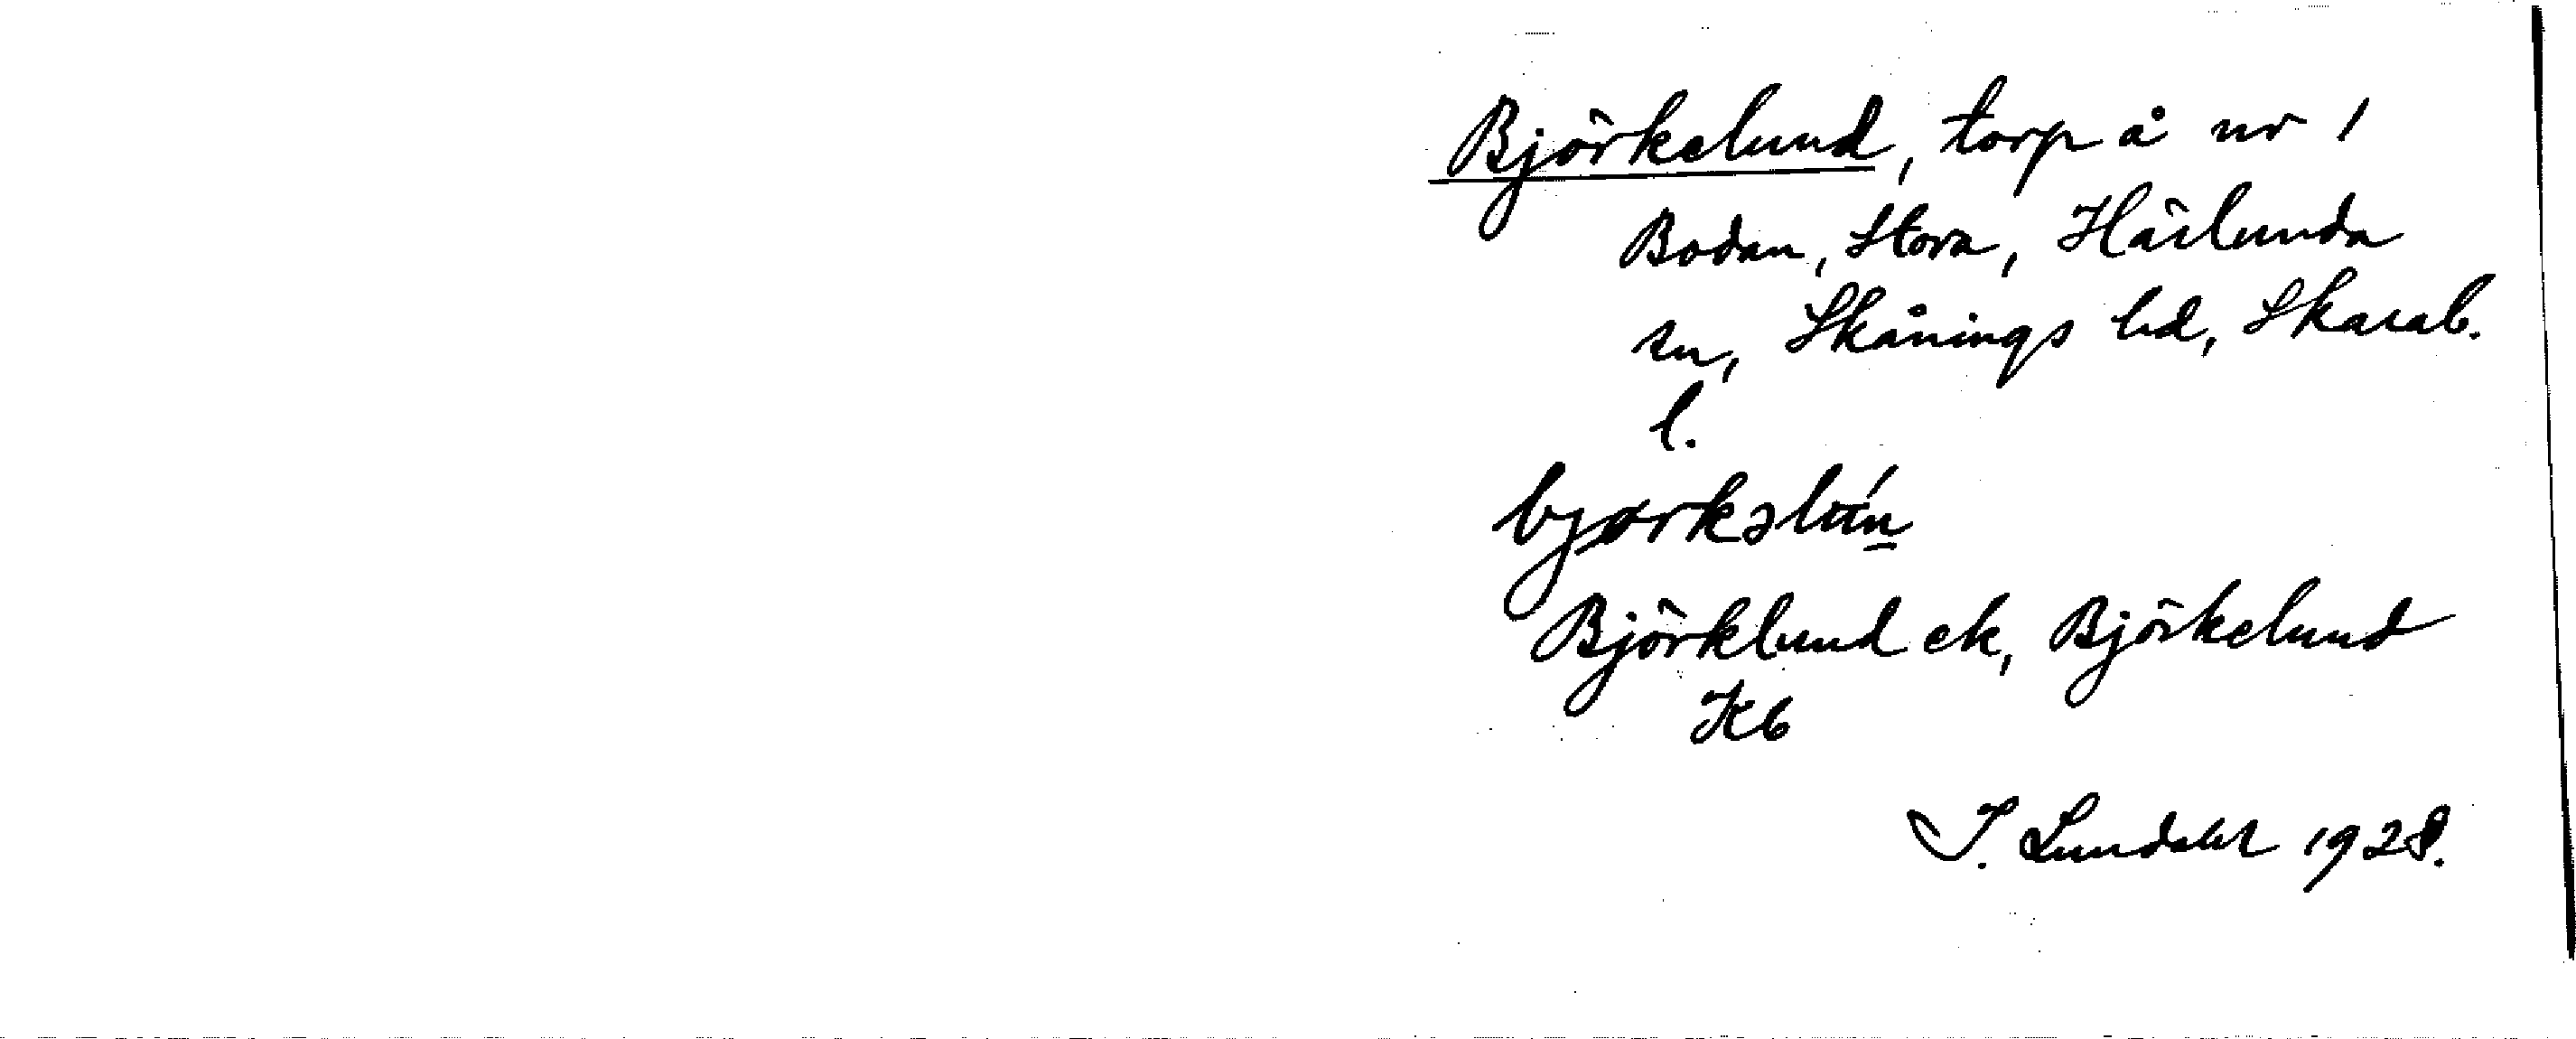 Björkelund, torp å nr 1
Bodan, Stora, Härlunda
sn, Skånings hd, Skarab.
l.
bjørkəlún
Björklund ek, Björkelund
Kb
I. Lundahl 1928.